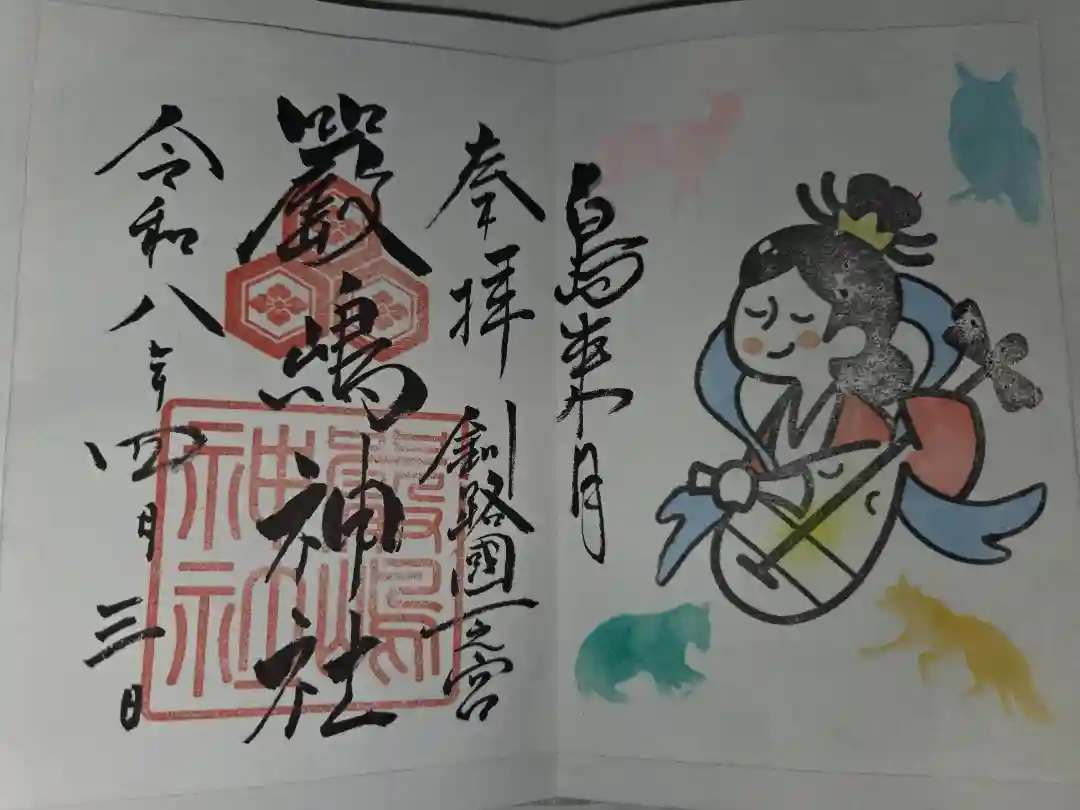 鳥來月
奉拝
釧路國一之宮
嚴嶋神社
令和八年四月三日
嚴嶋
神社